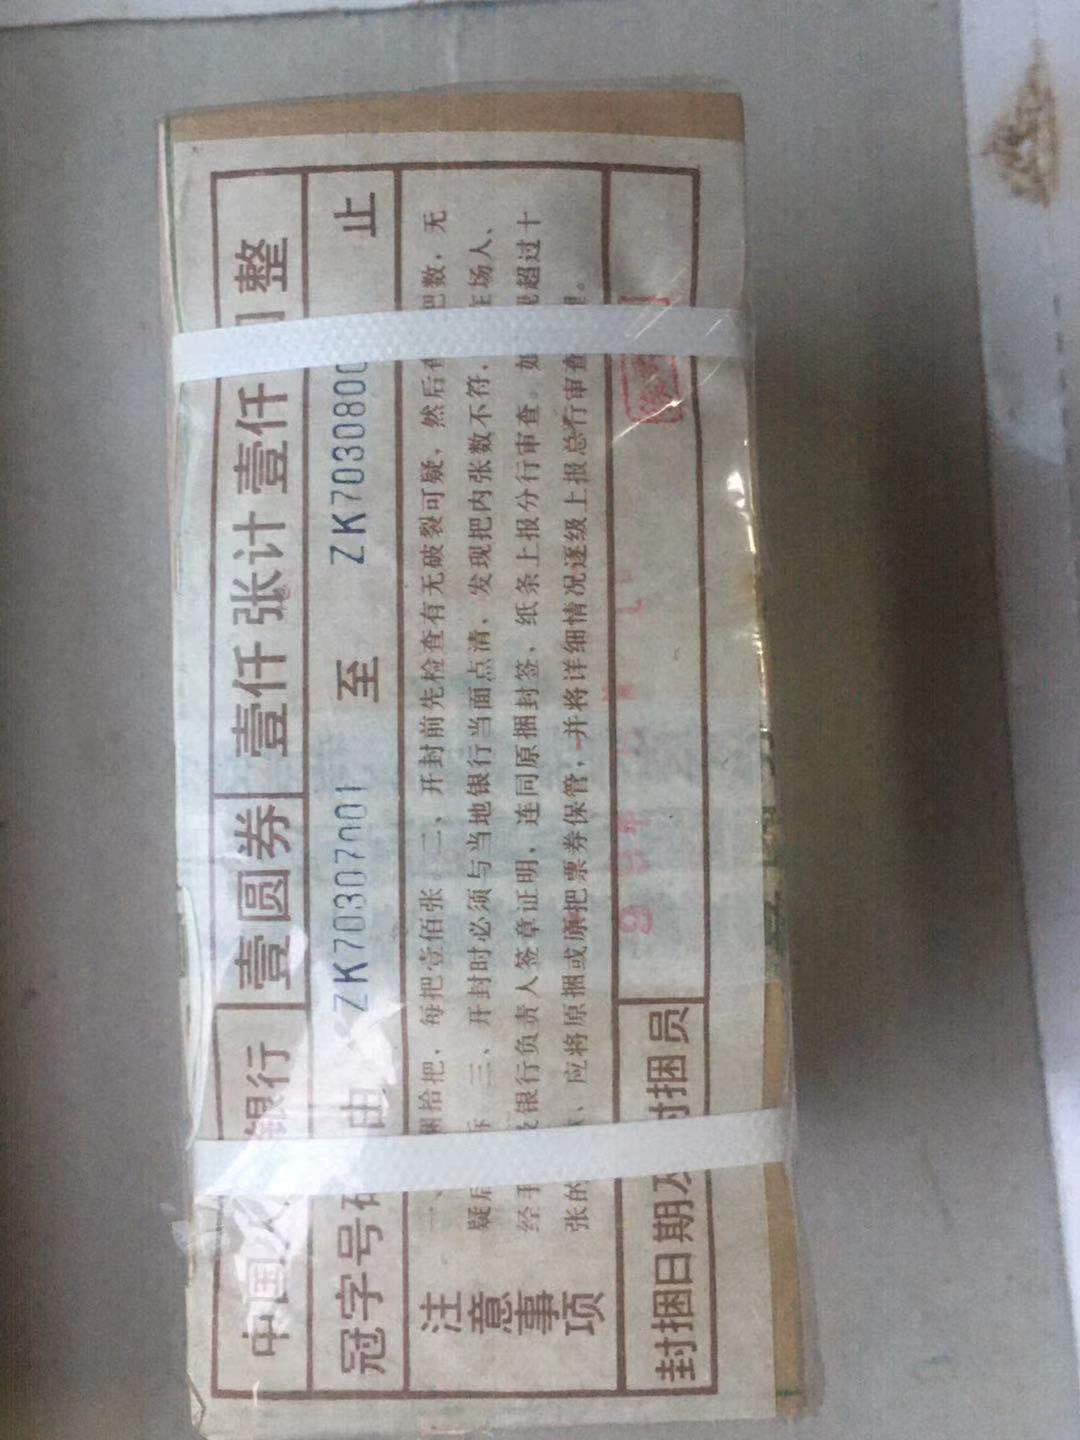 中国 银行 壹圆券 壹仟张计壹仟 整
冠字号 由 ZK70307001 至 ZK7030800 止
注意事项
一、 捆拾把，每把壹佰张 二、开封前先检查有无破裂可疑，然后 把数，无
疑后 三、开封时必须与当地银行当面点清，发现把内张数不符， 在场人、
经手 银行负责人签章证明，连同原捆封签、纸条上报分行审查。如 超过十
张的 、应将原捆或原把票券保管，并将详细情况逐级上报总行审查 。
封捆日期及封捆员